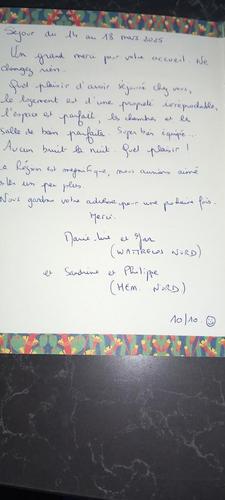 Séjour du 14 au 18 mars 2025
Un grand merci pour votre accueil. Ne
changez rien.
Quel plaisir d'avoir séjourné chez vous,
le logement est d'une propreté irréprochable,
l'espace est parfait, les chambres et les
salle de bain parfaite. Super bien équipée..
Aucun bruit la nuit. Quel plaisir !
La Région est magnifique, nous aurions aimé
rester un peu plus.
Nous gardons votre adresse pour une prochaine fois.
Merci.
Marie-Line et
(WATTRELOS NORD)
et Sandrine et Philippe
(HEM. NORD)
10/10